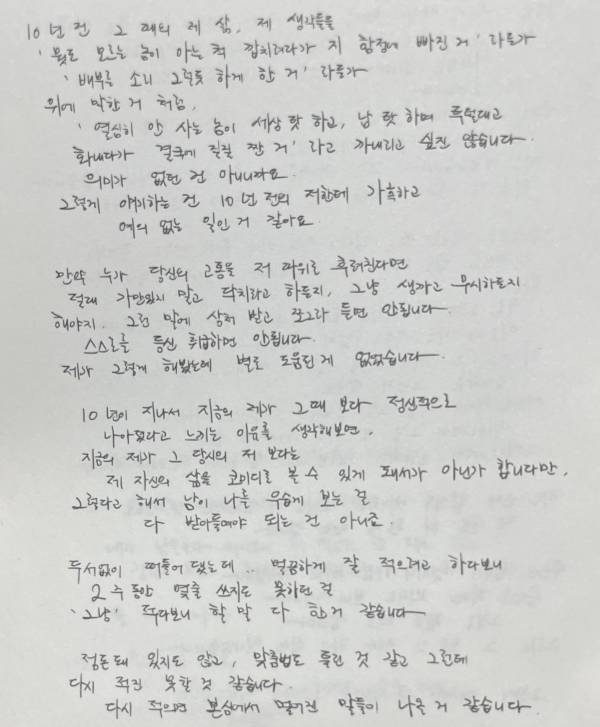 10년 전 그 때의 제 삶, 제 생각들을
'뭣도 모르는 놈이 아는 척 깝치려다가 지 함정에 빠진 거' 라든가
'배부른 소리 그럴듯 하게 한 거' 라든가
위에 말한 거 처럼,
'열심히 안 사는 놈이 세상 탓 하고, 남 탓 하며 투덜대고
화내다가 결국에 질질 짠 거' 라고 까내리고 싶진 않습니다.
의미가 없던 건 아니니까요.
그렇게 얘기하는 건 10년 전의 저한테 가혹하고
예의 없는 일인 거 같아요.
만약 누가 당신의 고통을 저 따위로 후려친다면
절대 가만있지 말고 닥치라고 하든지, 그냥 생까고 무시하든지
해야지. 그런 말에 상처 받고 쪼그라 들면 안됩니다.
스스로를 등신 취급하면 안됩니다.
제가 그렇게 해봤는데 별로 도움된 게 없었습니다.
10년이 지나서 지금의 제가 그때 보다 정신적으로
나아졌다고 느끼는 이유를 생각해보면,
지금의 제가 그 당시의 저 보다는
제 자신의 삶을 코미디로 볼 수 있게 돼서가 아닌가 합니다만,
그렇다고 해서 남이 나를 우습게 보는 걸
다 받아들여야 되는 건 아니죠.
두서없이 떠들어 댔는데... 멀끔하게 잘 적으려고 하다보니
2주 동안 몇줄 쓰지도 못하던 걸
'그냥' 적다보니 할 말 다 한거 같습니다.
정돈돼 있지도 않고, 맞춤법도 틀린 것 같고 그런데
다시 적진 못할 것 같습니다.
다시 적으면 본심에서 멀어진 말들이 나올 거 같습니다.